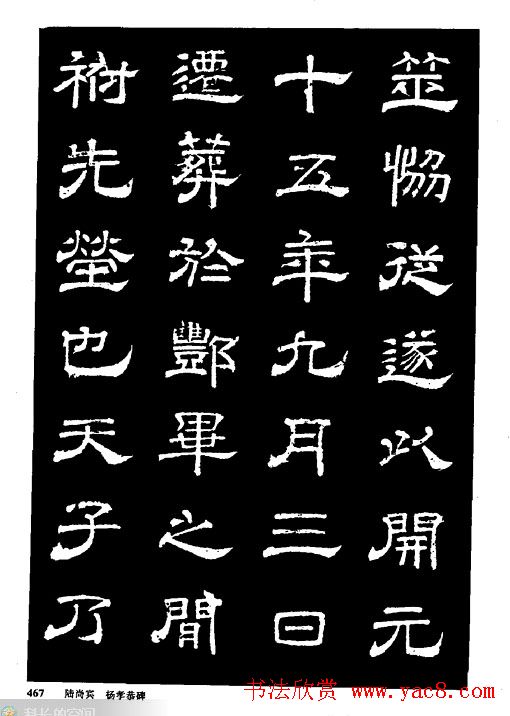 筮恊從遂以開元
十五年九月三日
遷葬於酆畢之間
祔先塋也天子乃
467 陆尚宾 杨孝恭碑
书法欣赏 www.yac8.com
科长的空间